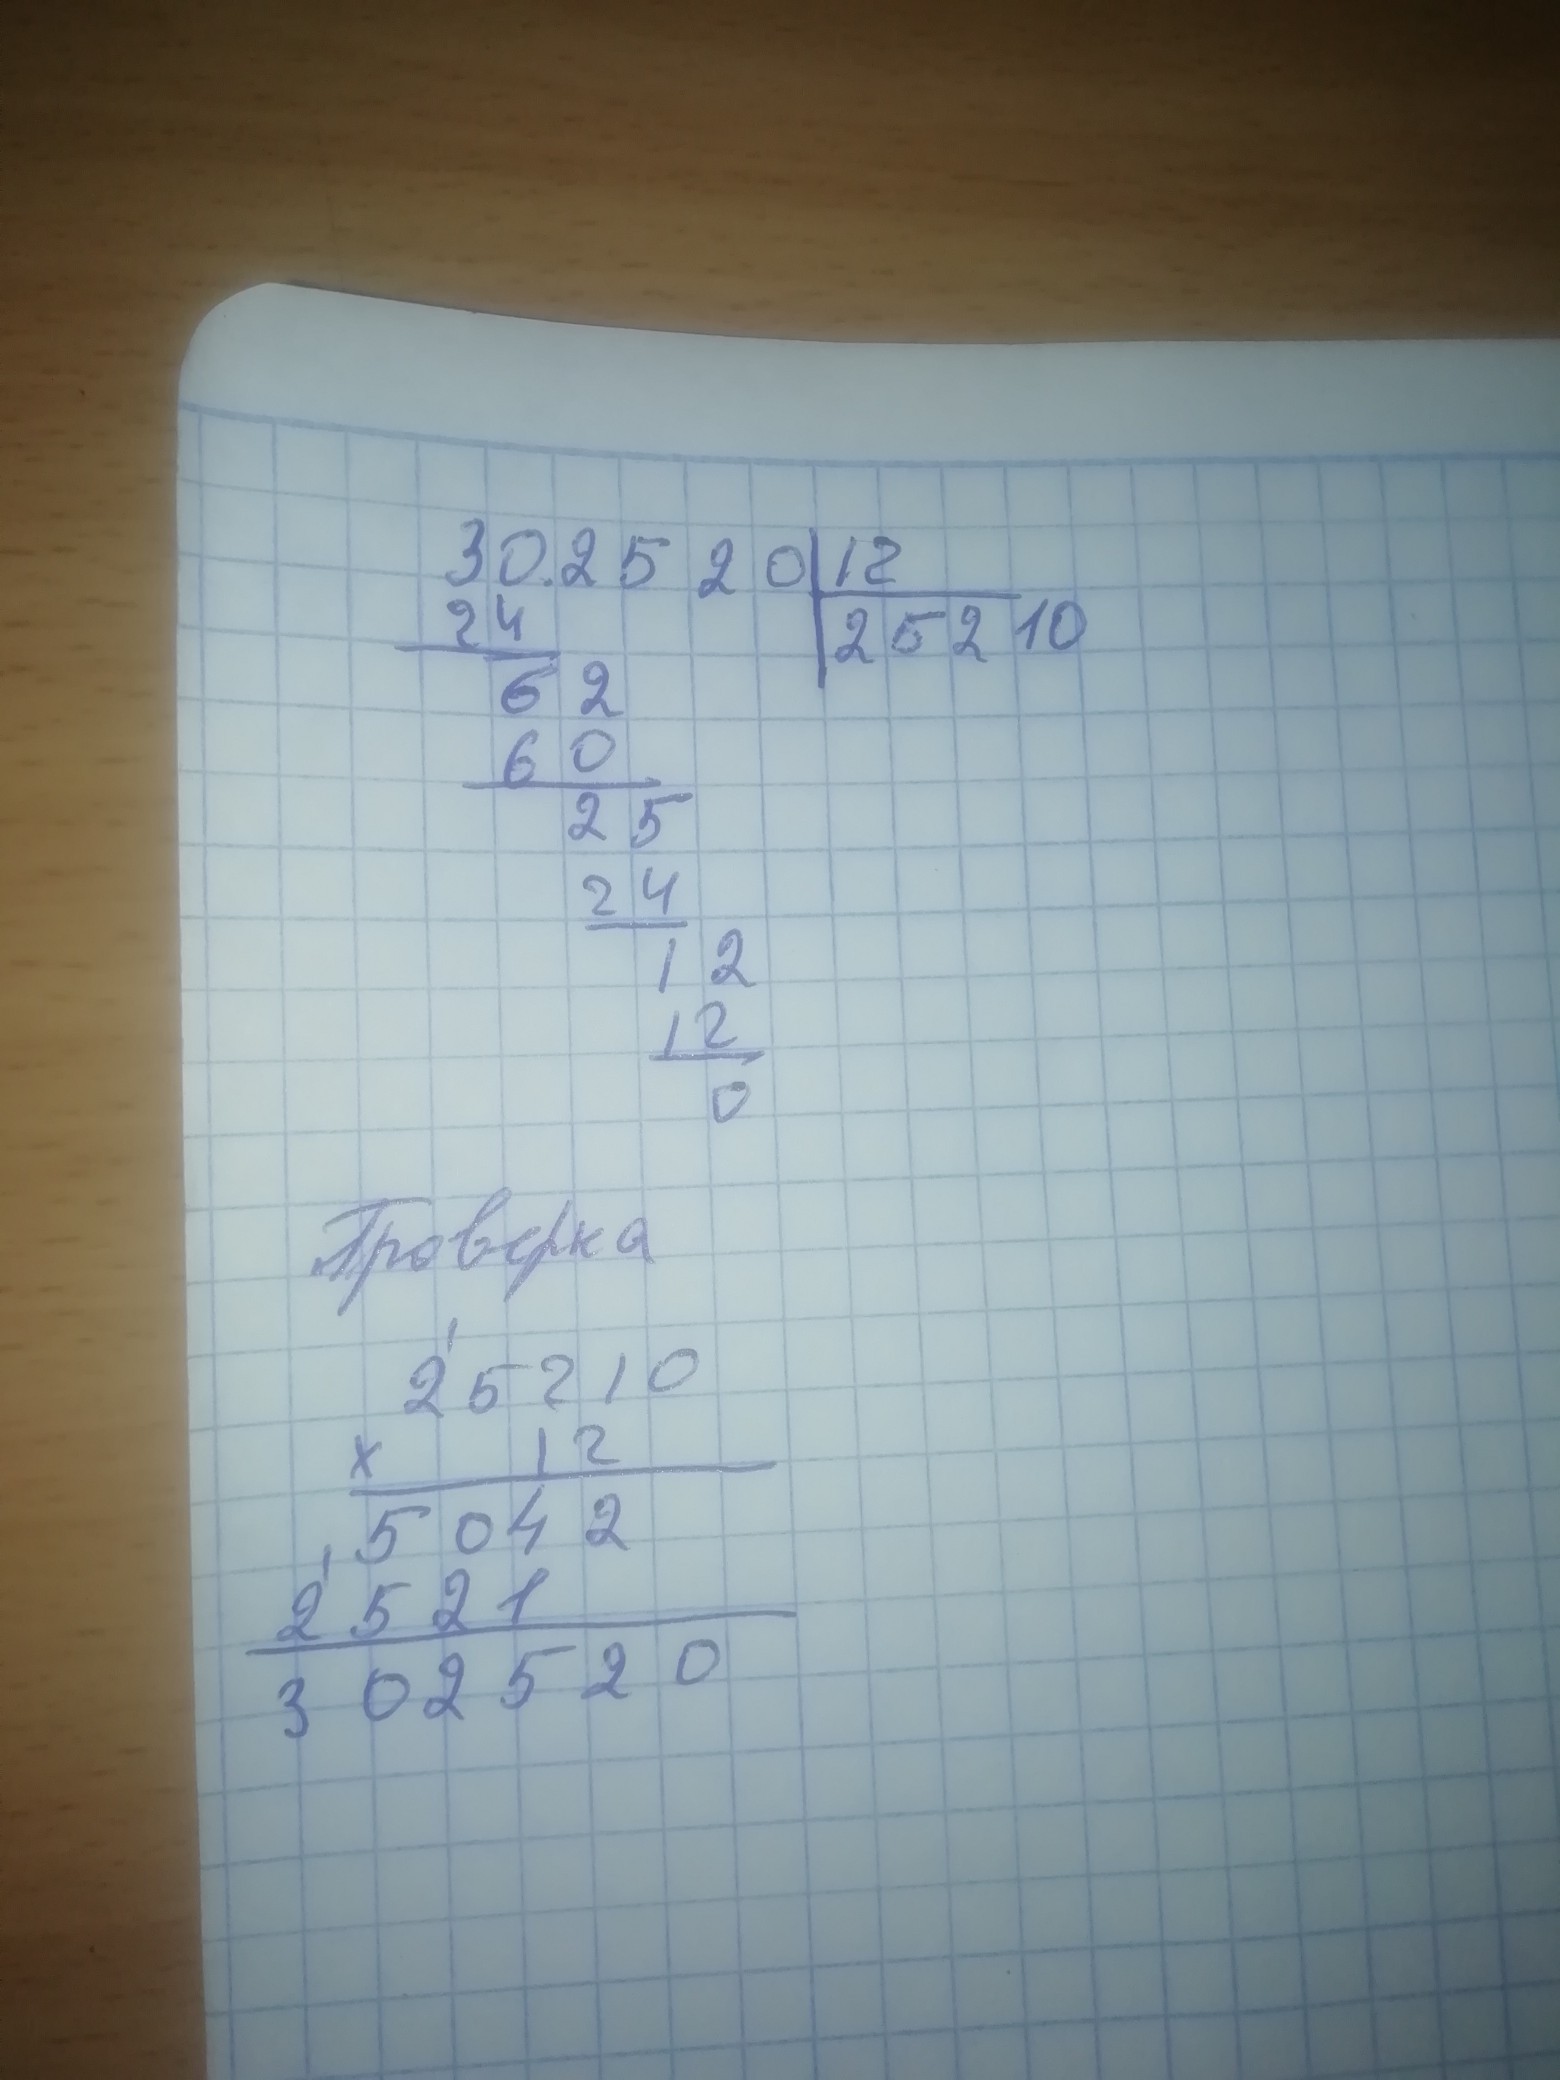 30.2520 12
24 25210
62
60
25
24
12
12
0
Проверка
1
25210
x 12
5042
1
2521
302520